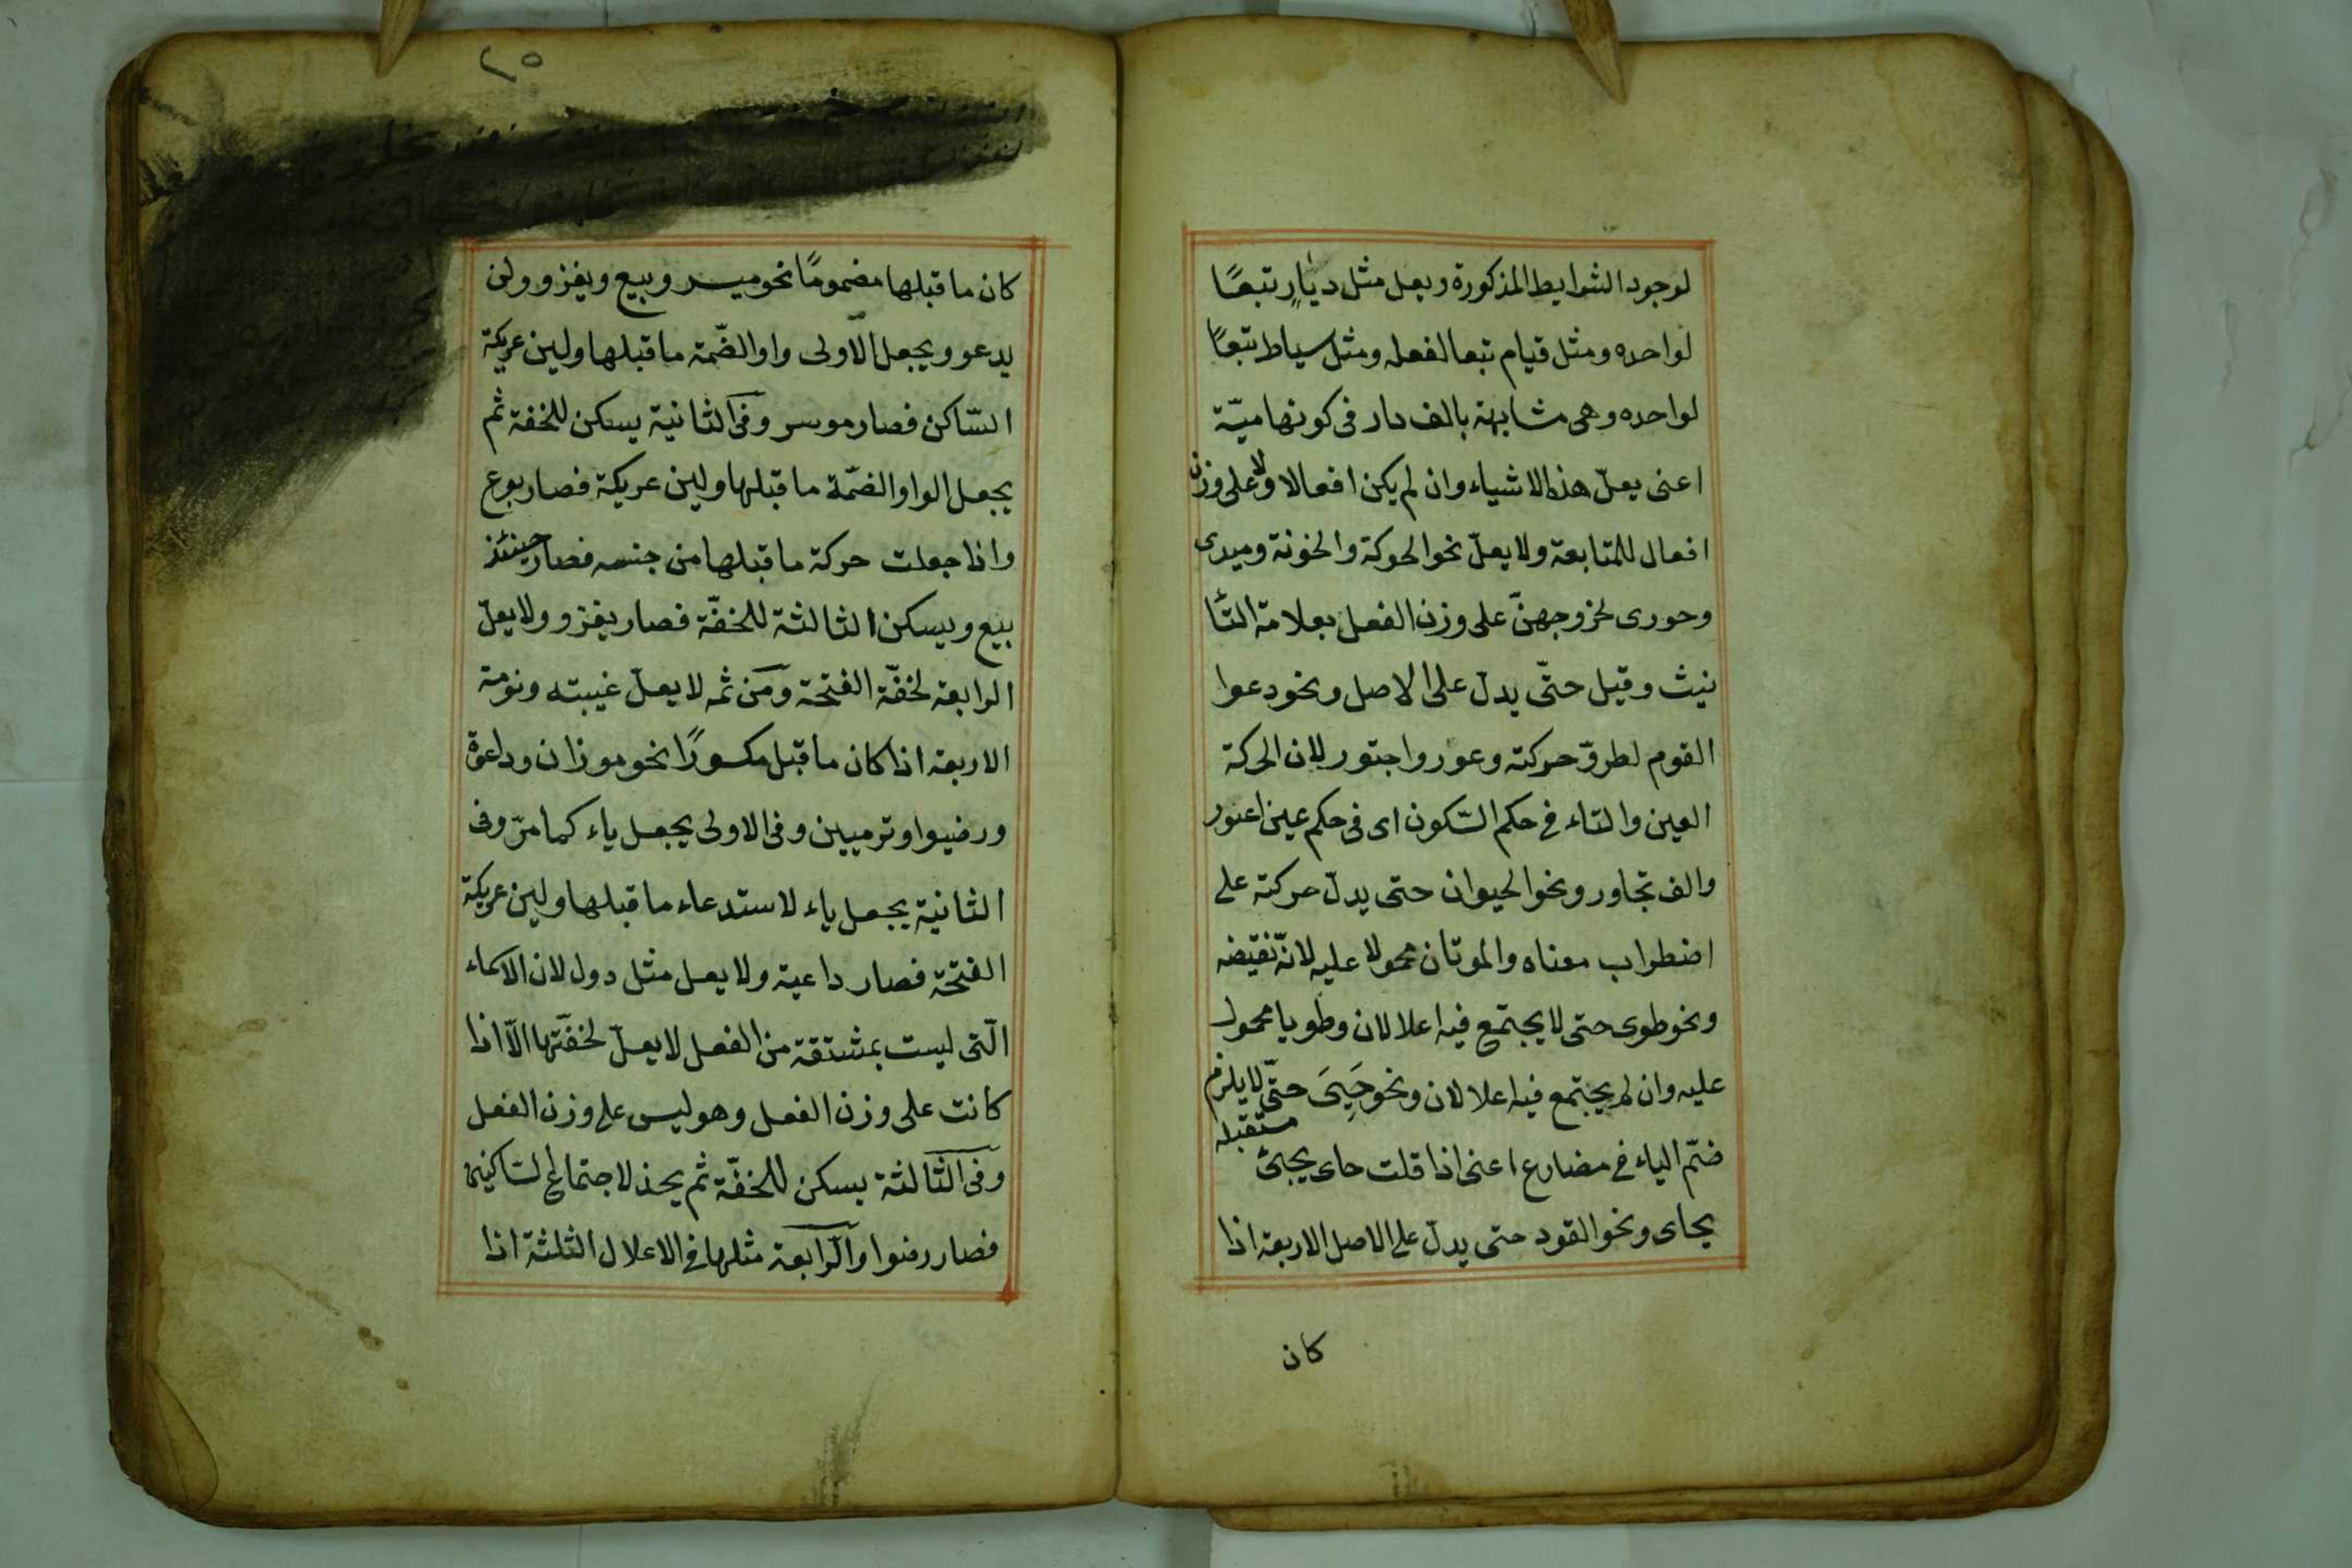 لوجود الشرايط المذكورة ويعل مثل ديارٍ تبعًا
لواحده ومثل قيام تبعا لفعله ومثل سياط تبعًا
لواحده وهى مشابهة بالف دار فى كونها ميّة
اعنى يعلّ هذه الاشياء وان لم يكن افعالا ولا على وزن
افعال للمتابعة ولا يعلّ نحو الحوكة والخونة وميدى
وحورى لخروجهنّ على وزن الفعل بعلامة التّا
نيث وقيل حتّى يدلّ على الاصل ونحو دعوا
القوم لطروّ حركته وعور واجتور لان الحركة
العين والتاء فى حكم السّكون اى فى حكم عين اعور
والف تجاور ونحو الحيوان حتى يدلّ حركته على
اضطراب معناه والموتان محمولا عليه لانّه نقيضه
ونحو طوى حتى لا يجتمع فيه اعلالان وطويا محمول
عليه وان لم يجتمع فيه اعلالان ونحو حَيِىَ حتّى لا يلزم
ضمّ الياء فى مضارع اعنى اذا قلت حاى يجئ
مستقبله
يحاى ونحو القود حتى يدلّ على الاصل الاربعة اذا
كان
٢٥
كان ما قبلها مضمومًا نحو ميسر وبيع ويغزو ولن
يدعو ويجعل الاولى واوا لضّمة ما قبلها ولين عريكة
السّاكن فصار موسر وفى الثانية يسكن للخفة ثم
يجعل الواو الضمّة ما قبلها ولين عريكة فصار بوع
واذا جعلت حركة ما قبلها من جنسه فصار حينئذ
بيع ويسكن الثالثة للخفّة فصار يغزو ولا يعلّ
الرابعة لخفّة الفتحة ومن ثمه لا يعلّ غيبته ونومة
الاربعة اذا كان ما قبل مكسورًا نحو موزان وداعوة
ورضيوا وترميين وفى الاولى يجعل ياء كما مرّ وفى
الثانية يجعل ياء لاستدعاء ما قبلها ولين عريكة
الفتحة فصار داعية ولا يعل مثل دول لان الاسماء
الّتى ليست بمشتقة من الفعل لا يعلّ لخفّتها الّا اذا
كانت على وزن الفعل وهو ليس على وزن الفعل
وفى الثّالثة يسكن للخفّة ثم يحذ لاجتماع السّاكنين
فصار رضوا والرّابعة مثلها فى الاعلال الثلثة اذا